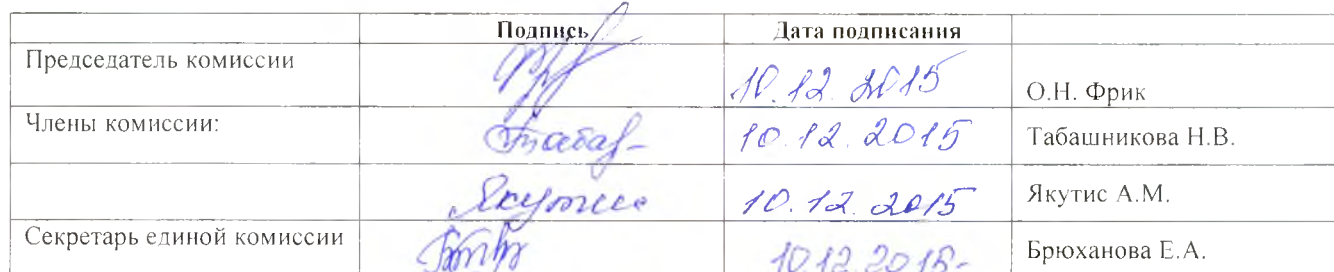 Подпись Дата подписания
Председатель комиссии 10.12.2015 О.Н. Фрик
Члены комиссии: Табаш 10.12.2015 Табашникова Н.В.
Якутис 10.12.2015 Якутис А.М.
Секретарь единой комиссии 10.12.2015 Брюханова Е.А.